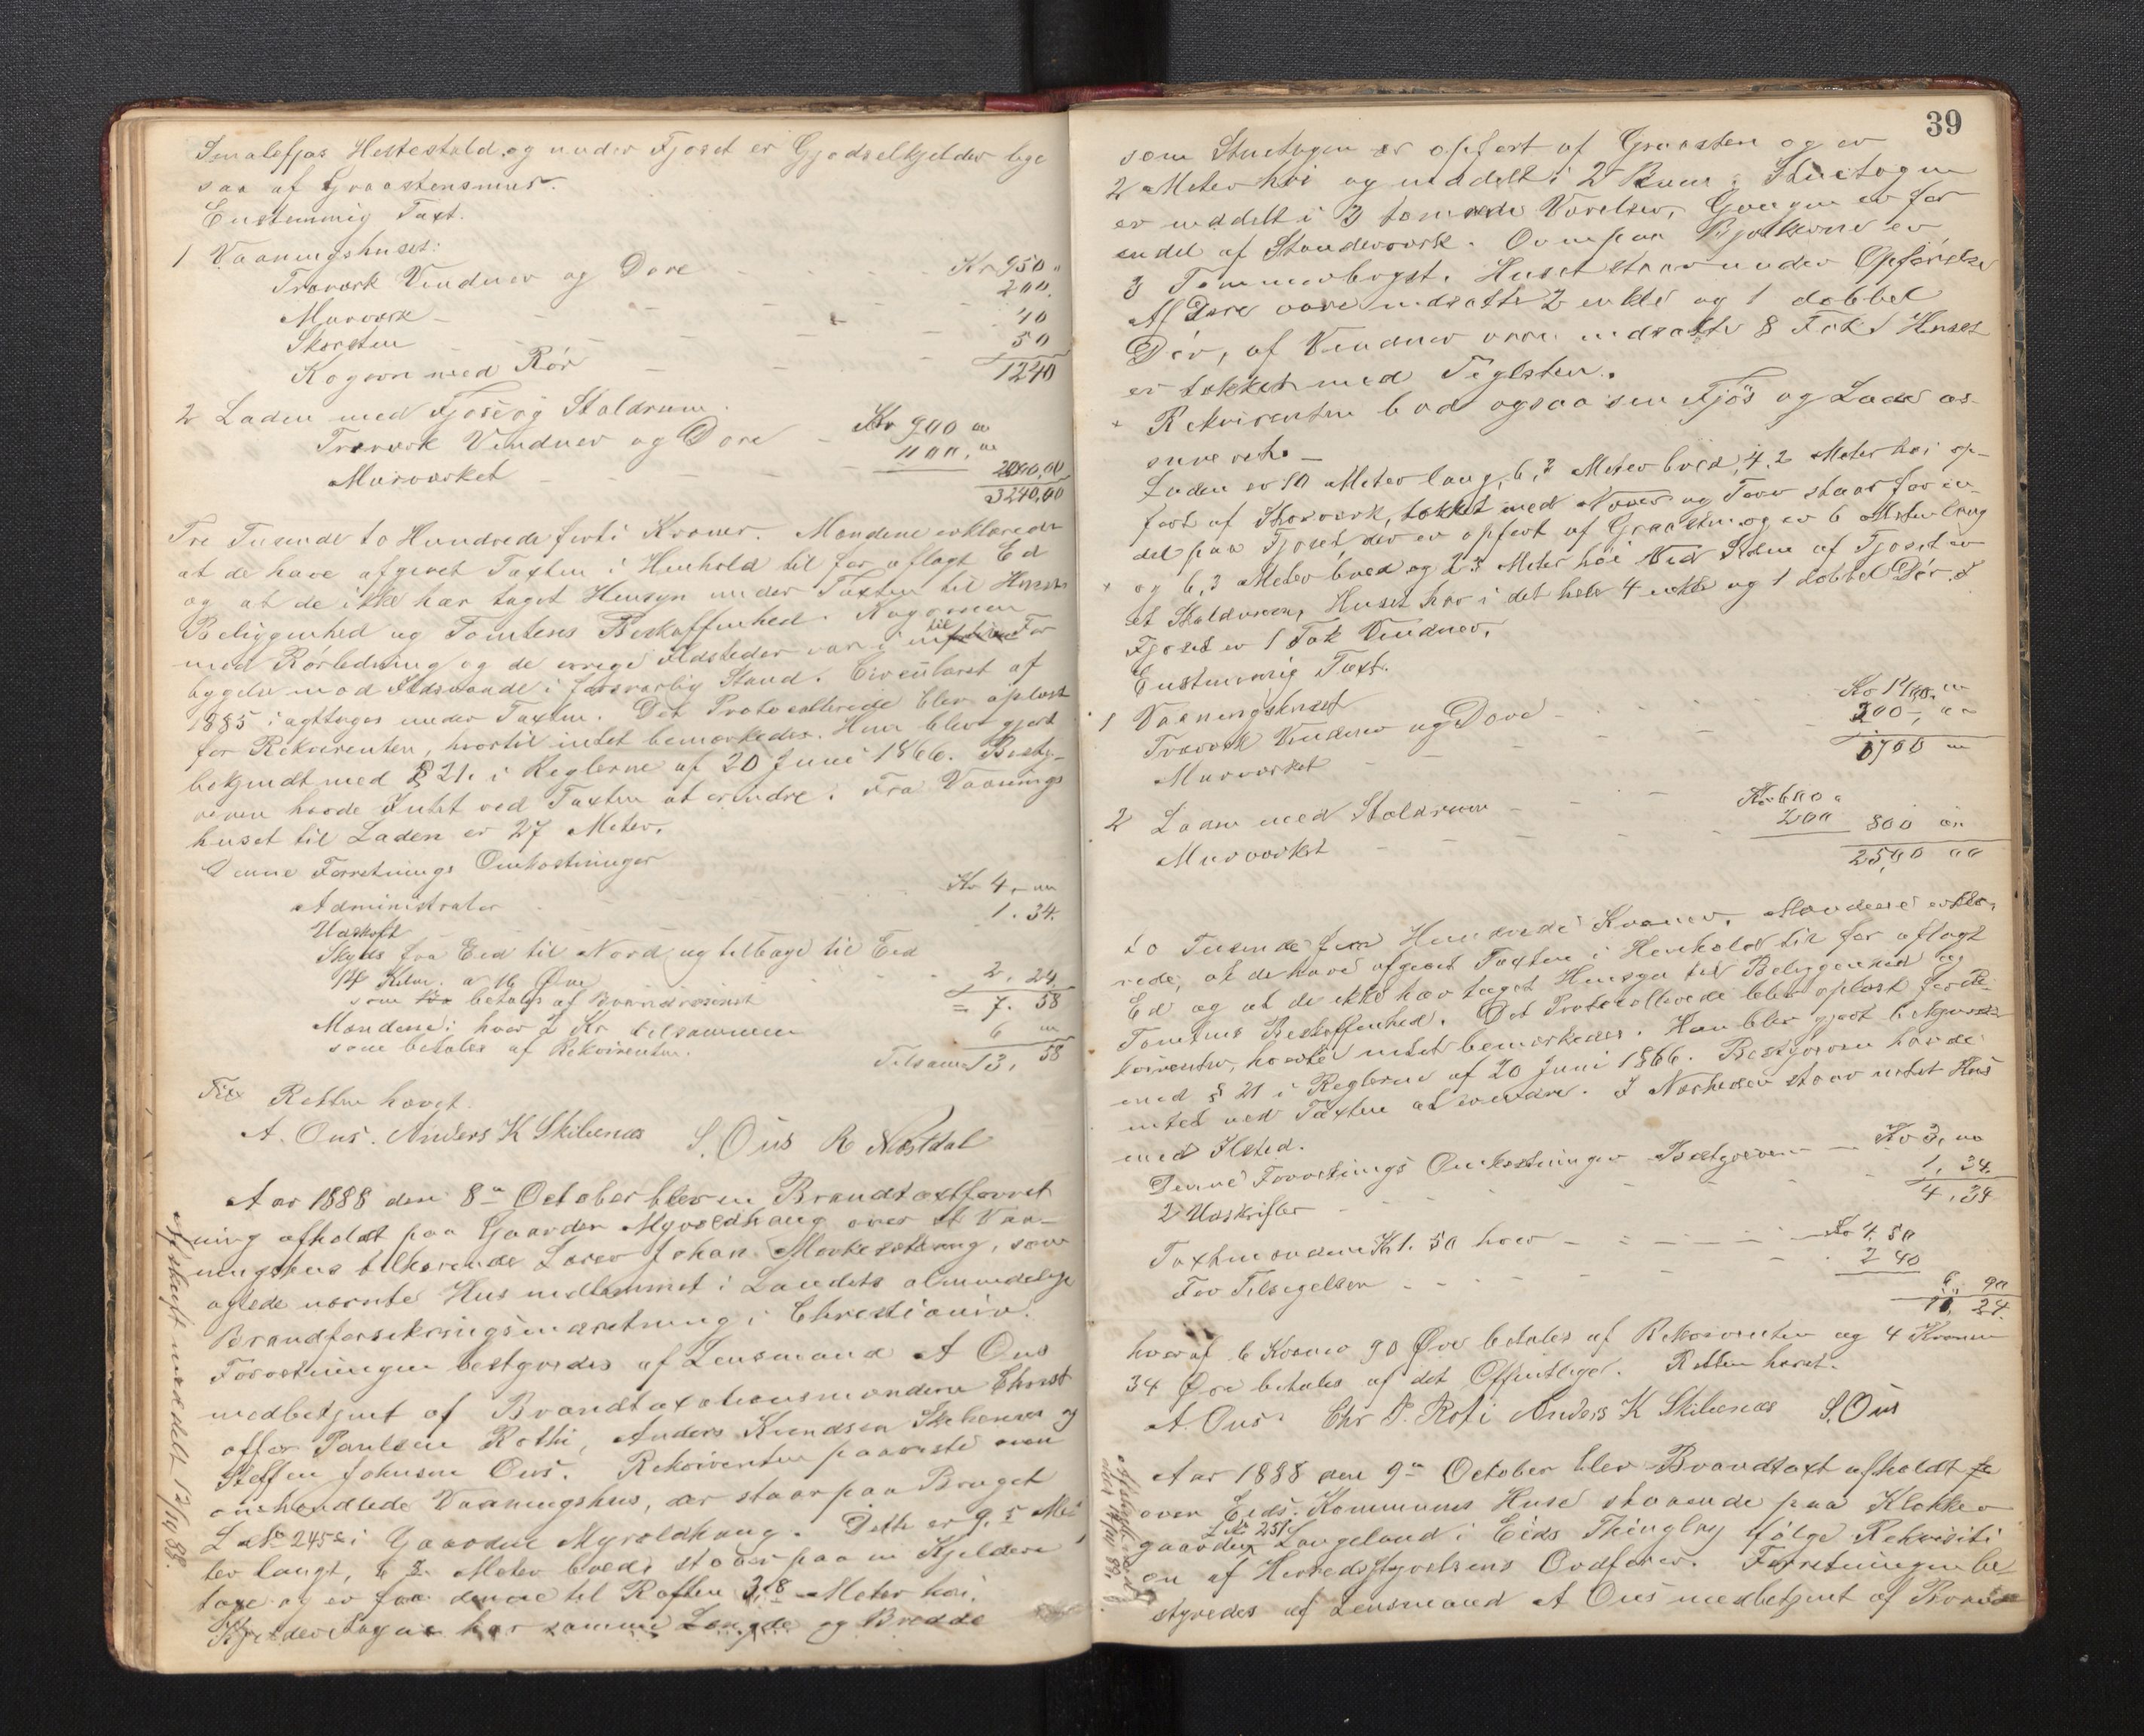 Smalefjøs Hestestald og under Fjøset er Gjødselkjelder lige
saa af Graastensmur.
Enstemmig Taxt.
1 Vaaningshuset:
Træværk Vinduer og Døre - - - Kr 950 "
Murværk - - - 200.
Skorsten - - - 40
Kogovn med Rör - - - 50
1240
2 Laden med Fjøs og Staldrum.
Træværk Vinduer og Døre - Kr 900 "
Murværket - - - 1100, " 2000,00
3240,00
Tre Tusende to Hundrede forti Kroner. Mændene erklærede
at de have afgivet Taxten i Henhold til før aflagt Ed
og at de ikke har taget Hensyn under Taxten til Husets
Beliggenhed og Tomtens Beskaffenhed. Kogovnen
med Rörledning og de øvrige Ildsteder var i til For
bygelse mod Ildsvaade i forsvarlig Stand. Circulæret af
1885 iagttoges under Taxten. Det Protocollerede blev oplæst
for Rekvirenten, hvortil intet bemærkedes. Han blev gjort
bekjendt med § 21. i Reglerne af 20 Juni 1866. Besty-
reren havde Intet ved Taxten at erindre. Fra Vaanings
huset til Laden er 27 Meter.
Denne Forretnings Omkostninger
Administrator - - - Kr 4, "
Udskrift - - - 1. 34.
Skyds fra Eid til Nord og tilbage til Eid
14 Kilm. a 16 Øre - - - 2, 24
som betales af Brandvæsenet = 7. 58
Mændene: hver 2 Kr tilsammen 6 "
som betales af Rekvirenten. Tilsam. 13, 58
Retten hævet.
A. Ous. Anders K Skibenæs S. Ous R Nøstdal
Aar 1888 den 8de October blev en Brandtaxtforret
ning afholdt paa Gaarden Myroldhaug over et Vaa-
ningshus tilhørende Lærer Johan, som
agtede nævnte Hus indlemmet i Landets almindelige
Brandforsikringsindretning i Christiania.
Forretningen bestyredes af Lensmand A Ous
medbetjent af Brandtaxationsmændene Christ
offer Paulsen Rothi, Anders Knudsen Skibenæs og
Steffen Johnsen Ous. Rekvirenten paaviste oven
omhandlede Vaaningshus, der staar paa Bruget
L No 245c i Gaarden Myroldhaug. Dette er 9.5 Me
ter langt, 6.2 Meter bred, staar paa en Kjelder
tage og er fra denne til Raften 3.8 Meter høi.
Kjelderetagen har samme Længde og Bredde
Afskrift meddelt 12/10 88.
39
som Stuetagen er opført af Graasten og er
2 Meter høi og inddelt i 2 Rum. Stuetagen
er inddelt i 3 tømrede Værelser, Gangen er for
endel af Standerværk. Ovenpaa Bjelkerne er
3 Tømmerhøgst. Huset staar under Opførelse
Af Døre vare indsatte 2 enkle og 1 dobbel
Dör, af Vinduer vare indsatte 8 Fak. Huset
er tækket med Teglsten.
Rekvirenten bad ogsaa sin Fjös og Lade as-
sureret. -
Laden er 10 Meter lang, 6,3 Meter bred, 4.2 Meter høi op-
ført af Skorværk, tækket med Næver og Torv staar for en-
del paa Fjøset, der er opført af Graasten og er 6 Meter lang
og 6,3 Meter bred og 2.3 Meter høi. Ved Siden af Fjøset er
et Staldrum, Huset har i det hele 4 enkle og 1 dobbel Dör. I
Fjøset er 1 Fak Vinduer.
Enstemmig Taxt.
1 Vaaningshuset
Træværk Vinduer og Døre - - - Kr 1400, "
Murværket - - - 300, "
1700 "
2 Laden med Staldrum - - - Kr 600 "
Murværket - - - 200 800 "
2500 "
to Tusende fem Hundrede Kroner. Mændene erklæ-
rede, at de have afgivet Taxten i Henhold til før aflagt
Ed og at de ikke har taget Hensyn til Beliggenhed og
Tomtens Beskaffenhed. Det Protocollerede blev oplæst for Re-
kvirenten, hvortil intet bemærkedes. Han blev gjort bekjendt
med § 21 i Reglerne af 20 Juni 1866. Bestyreren havde
intet ved Taxten at erindre. I Nærheden staar intet Hus
med Ilsted.
Denne Forretnings Omkostninger Bestyreren - Kr 3, "
2 Udskrifter - - - 1, 34.
4, 34
Taxtmændene Kr 1. 50 hver - - - Kr 4, 50
For Tilsigelsen - - - 2 40
6 90
11, 24.
hvoraf 6 Kroner 90 Øre betales af Rekvirenten og 4 Kroner
34 Øre betales af det Offentlige. Retten hævet.
A. Ous. Chr P. Roti Anders K Skibenæs S. Ous
Aar 1888 den 9de October blev Brandtaxt afholdt
over Eids Kommunes Huse staaende paa Klokker
L No 251.
gaarden Langeland i Eids Thinglag ifølge Rekvisiti
on af Herredsstyrelsens Ordfører. Forretningen be-
styredes af Lensmand A Ous medbetjent af Brand